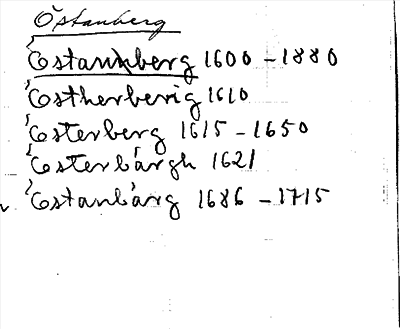 Östanberg
Östannberg 1600 - 1880
Östherberig 1610
Österberg 1615 - 1650
Österbärgh 1621
Östanbärg 1686 - 1715